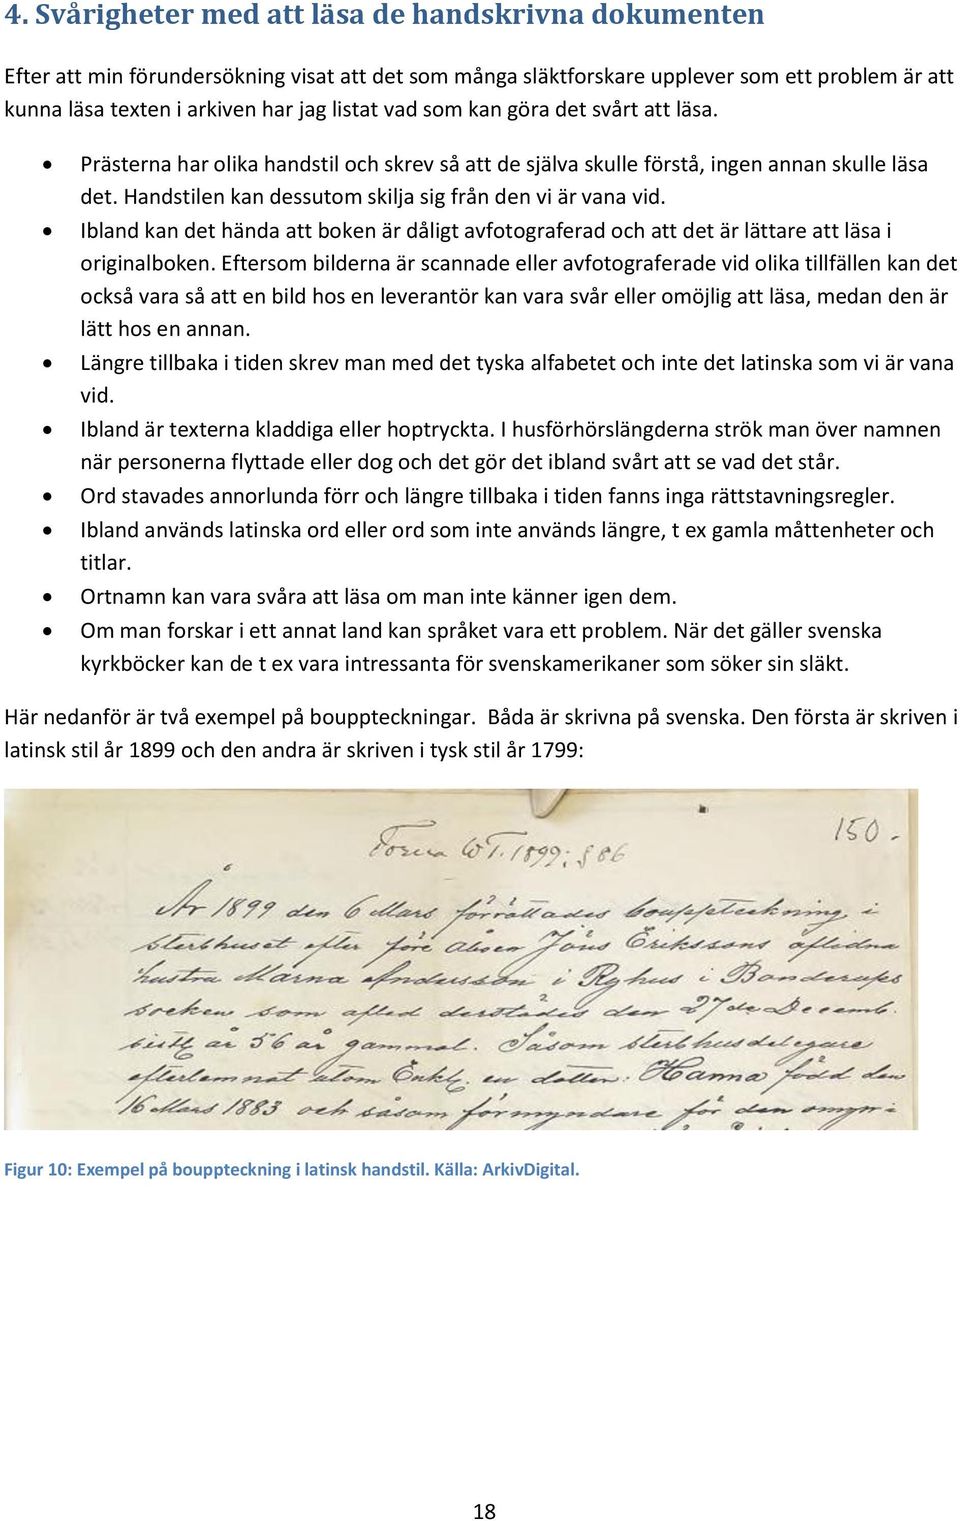 4. Svårigheter med att läsa de handskrivna dokumenten
Efter att min förundersökning visat att det som många släktforskare upplever som ett problem är att
kunna läsa texten i arkiven har jag listat vad som kan göra det svårt att läsa.
• Prästerna har olika handstil och skrev så att de själva skulle förstå, ingen annan skulle läsa
det. Handstilen kan dessutom skilja sig från den vi är vana vid.
• Ibland kan det hända att boken är dåligt avfotograferad och att det är lättare att läsa i
originalboken. Eftersom bilderna är scannade eller avfotograferade vid olika tillfällen kan det
också vara så att en bild hos en leverantör kan vara svår eller omöjlig att läsa, medan den är
lätt hos en annan.
• Längre tillbaka i tiden skrev man med det tyska alfabetet och inte det latinska som vi är vana
vid.
• Ibland är texterna kladdiga eller hoptryckta. I husförhörslängderna strök man över namnen
när personerna flyttade eller dog och det gör det ibland svårt att se vad det står.
• Ord stavades annorlunda förr och längre tillbaka i tiden fanns inga rättstavningsregler.
• Ibland används latinska ord eller ord som inte används längre, t ex gamla måttenheter och
titlar.
• Ortnamn kan vara svåra att läsa om man inte känner igen dem.
• Om man forskar i ett annat land kan språket vara ett problem. När det gäller svenska
kyrkböcker kan de t ex vara intressanta för svenskamerikaner som söker sin släkt.
Här nedanför är två exempel på bouppteckningar. Båda är skrivna på svenska. Den första är skriven i
latinsk stil år 1899 och den andra är skriven i tysk stil år 1799:
150.
Torna WT. 1899; § 86
År 1899 den 6 Mars förrättades bouppteckning i
sterbhuset efter före Åboen Jöns Erikssons aflidna
hustru Marna Andersson i Ryhus i Bonderups
socken som afled derstädes den 27de Decemb.
sistl. år 56 år gammal. Såsom sterbhusdelegare
efterlemnat utom Enkl. en dotter: Hanna född den
16 Mars 1883 och såsom förmyndare för den omyn-
Figur 10: Exempel på bouppteckning i latinsk handstil. Källa: ArkivDigital.
18